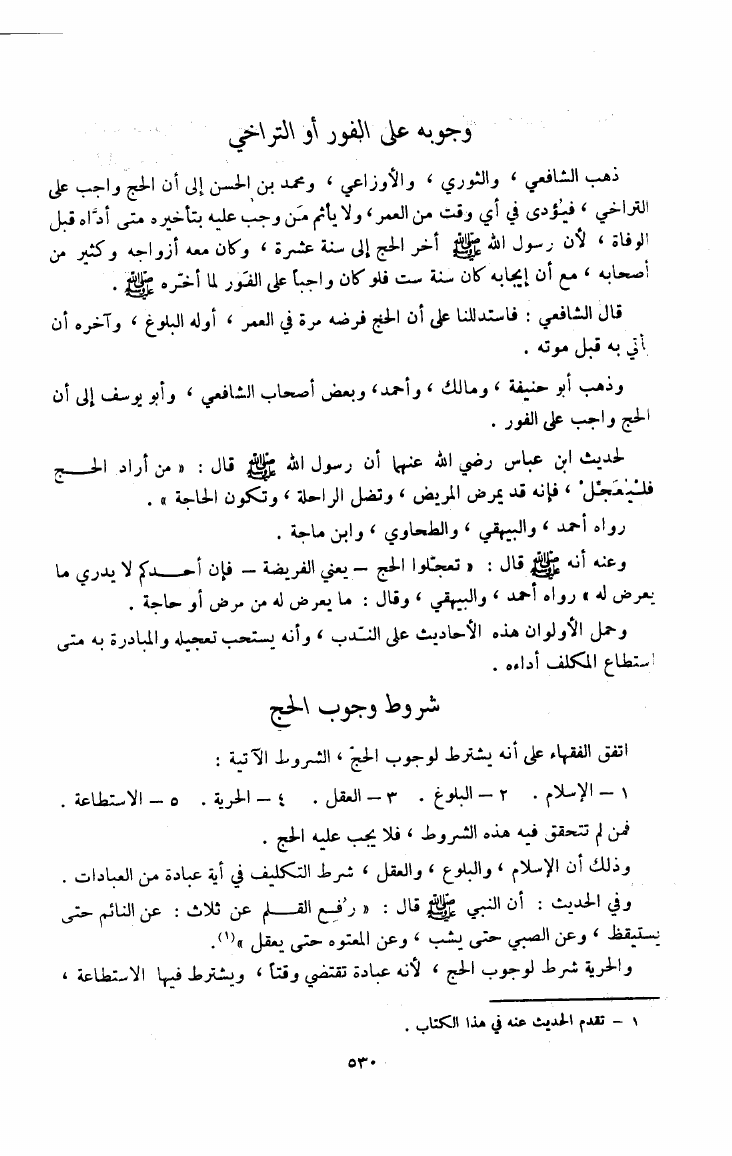 وجوبه على الفور أو التراخي
ذهب الشافعي ، والثوري ، والأوزاعي ، ومحمد بن الحسن إلى أن الحج واجب على
التراخي ، فيُؤدى في أي وقت من العمر، ولا يأثم مَن وجب عليه بتأخيره متى أدَّاه قبل
الوفاة ، لأن رسول الله ﷺ أخر الحج إلى سنة عشرة ، وكان معه أزواجه وكثير من
أصحابه ، مع أن إيجابه كان سنة ست فلو كان واجباً على الفَور لما أخّره ﷺ .
قال الشافعي : فاستدللنا على أن الحج فرضه مرة في العمر ، أوله البلوغ ، وآخره أن
يأتي به قبل موته .
وذهب أبو حنيفة ، ومالك ، وأحمد، وبعض أصحاب الشافعي ، وأبو يوسف إلى أن
الحج واجب على الفور .
لحديث ابن عباس رضي الله عنهما أن رسول الله ﷺ قال : « من أراد الحـــج
فلْيُعَجِّلْ ، فإنه قد يمرض المريض ، وتضل الراحلة ، وتكون الحاجة » .
رواه أحمد ، والبيهقي ، والطحاوي ، وابن ماجة .
وعنه أنه ﷺ قال : « تعجّلوا الحج – يعني الفريضة – فإن أحــدكم لا يدري ما
يعرض له » رواه أحمد ، والبيهقي ، وقال : ما يعرض له من مرض أو حاجة .
وحمل الأولوان هذه الأحاديث على النَّدب ، وأنه يستحب تعجيله والمبادرة به متى
استطاع المكلف أداءه .
شروط وجوب الحج
اتفق الفقهاء على أنه يشترط لوجوب الحجّ ، الشروط الآتية :
١ – الإسلام . ٢ – البلوغ . ٣ – العقل . ٤ – الحرية . ٥ – الاستطاعة .
فمن لم تتحقق فيه هذه الشروط ، فلا يجب عليه الحج .
وذلك أن الإسلام ، والبلوغ ، والعقل ، شرط التكليف في أية عبادة من العبادات .
وفي الحديث : أن النبي ﷺ قال : « رُفِع القــلم عن ثلاث : عن النائم حتى
يستيقظ ، وعن الصبي حتى يشب ، وعن المعتوه حتى يعقل »(١).
والحرية شرط لوجوب الحج ، لأنه عبادة تقتضي وقتاً ، ويشترط فيها الاستطاعة ،
١ – تقدم الحديث عنه في هذا الكتاب .
٥٣٠